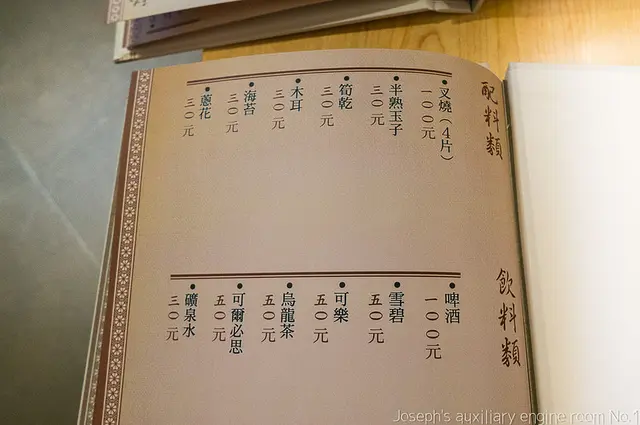 配料類
叉燒(4片)
一〇〇元
半熟玉子
三〇元
筍乾
三〇元
木耳
三〇元
海苔
三〇元
蔥花
三〇元
飲料類
啤酒
一〇〇元
雪碧
五〇元
可樂
五〇元
烏龍茶
五〇元
可爾必思
五〇元
礦泉水
三〇元
Joseph's auxiliary engine room No.1